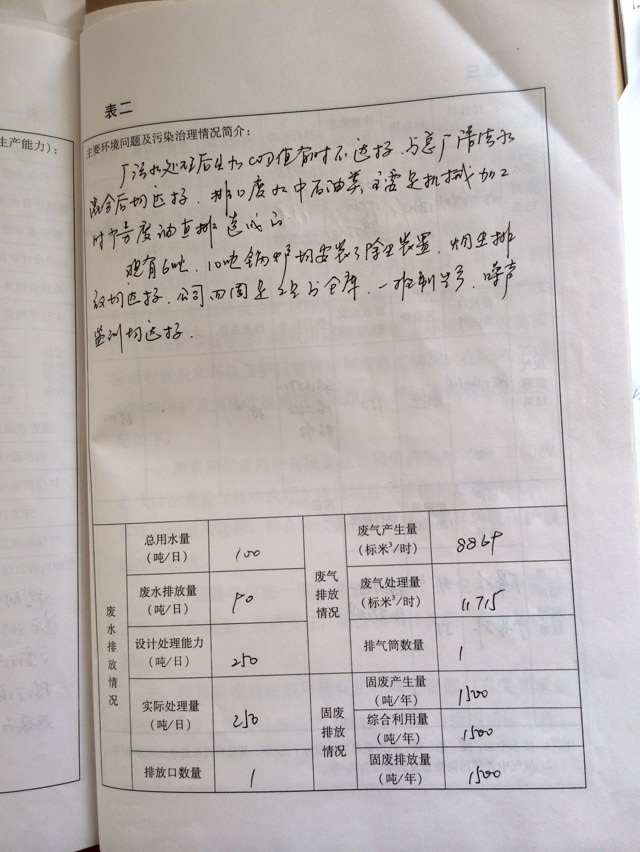 表二
生产能力）：
主要环境问题及污染治理情况简介：
厂污水处理后出水COD值有时不达标，与总厂清洁水
混合后均达标，排口废水中石油类主要是机械加工
时 废油直排造成的
现有6吨、10吨锅炉均安装了除尘装置，烟尘排
放均达标，公司四周是 仓库，一班制 ，噪声
监测均达标．
废水排放情况
总用水量（吨/日） 100
废水排放量（吨/日） 90
设计处理能力（吨/日） 250
实际处理量（吨/日） 250
排放口数量 1
废气排放情况
废气产生量（标米³/时） 8869
废气处理量（标米³/时） 11715
排气筒数量 1
固废排放情况
固废产生量（吨/年） 1500
综合利用量（吨/年） 1500
固废排放量（吨/年） 1500